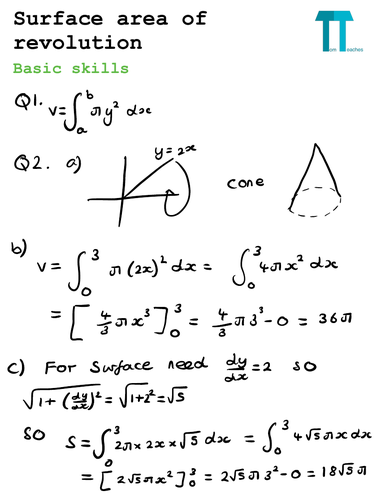 Surface area of
revolution
TT
Tom
Teaches
Basic skills
Q1. V=∫ₐᵇ πy² dx
Q2. a) y=2x cone
b) V=∫₀³ π(2x)² dx = ∫₀³ 4πx² dx
= [4/3 πx³]₀³ = 4/3 π3³-0 = 36π
c) For Surface need dy/dx=2 so
√(1+(dy/dx)²) = √(1+2²) = √5
So S=∫₀³ 2π×2x×√5 dx = ∫₀³ 4√5πx dx
= [2√5πx²]₀³ = 2√5π3²-0 = 18√5π